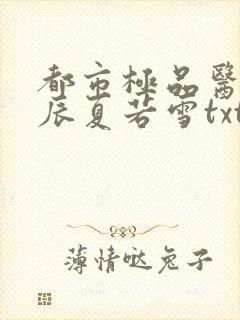 都市極品醫
辰夏若雪txt
薄情哒兔子